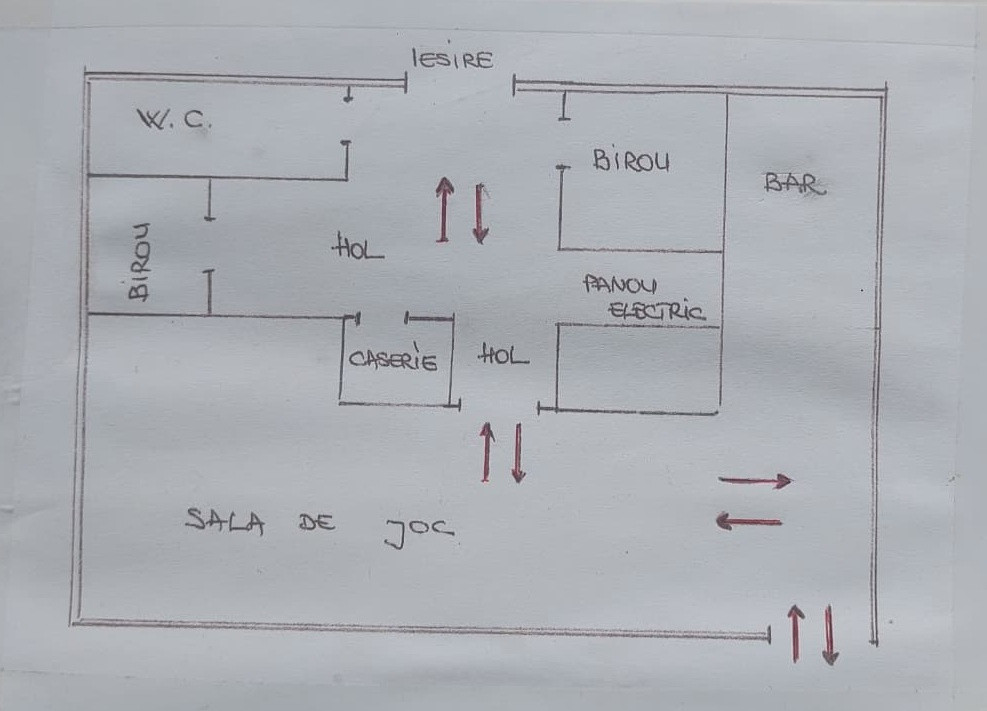 IESIRE
W.C.
BIROU
BAR
BIROU
HOL
PANOU
ELECTRIC
CASERIE
HOL
SALA DE JOC